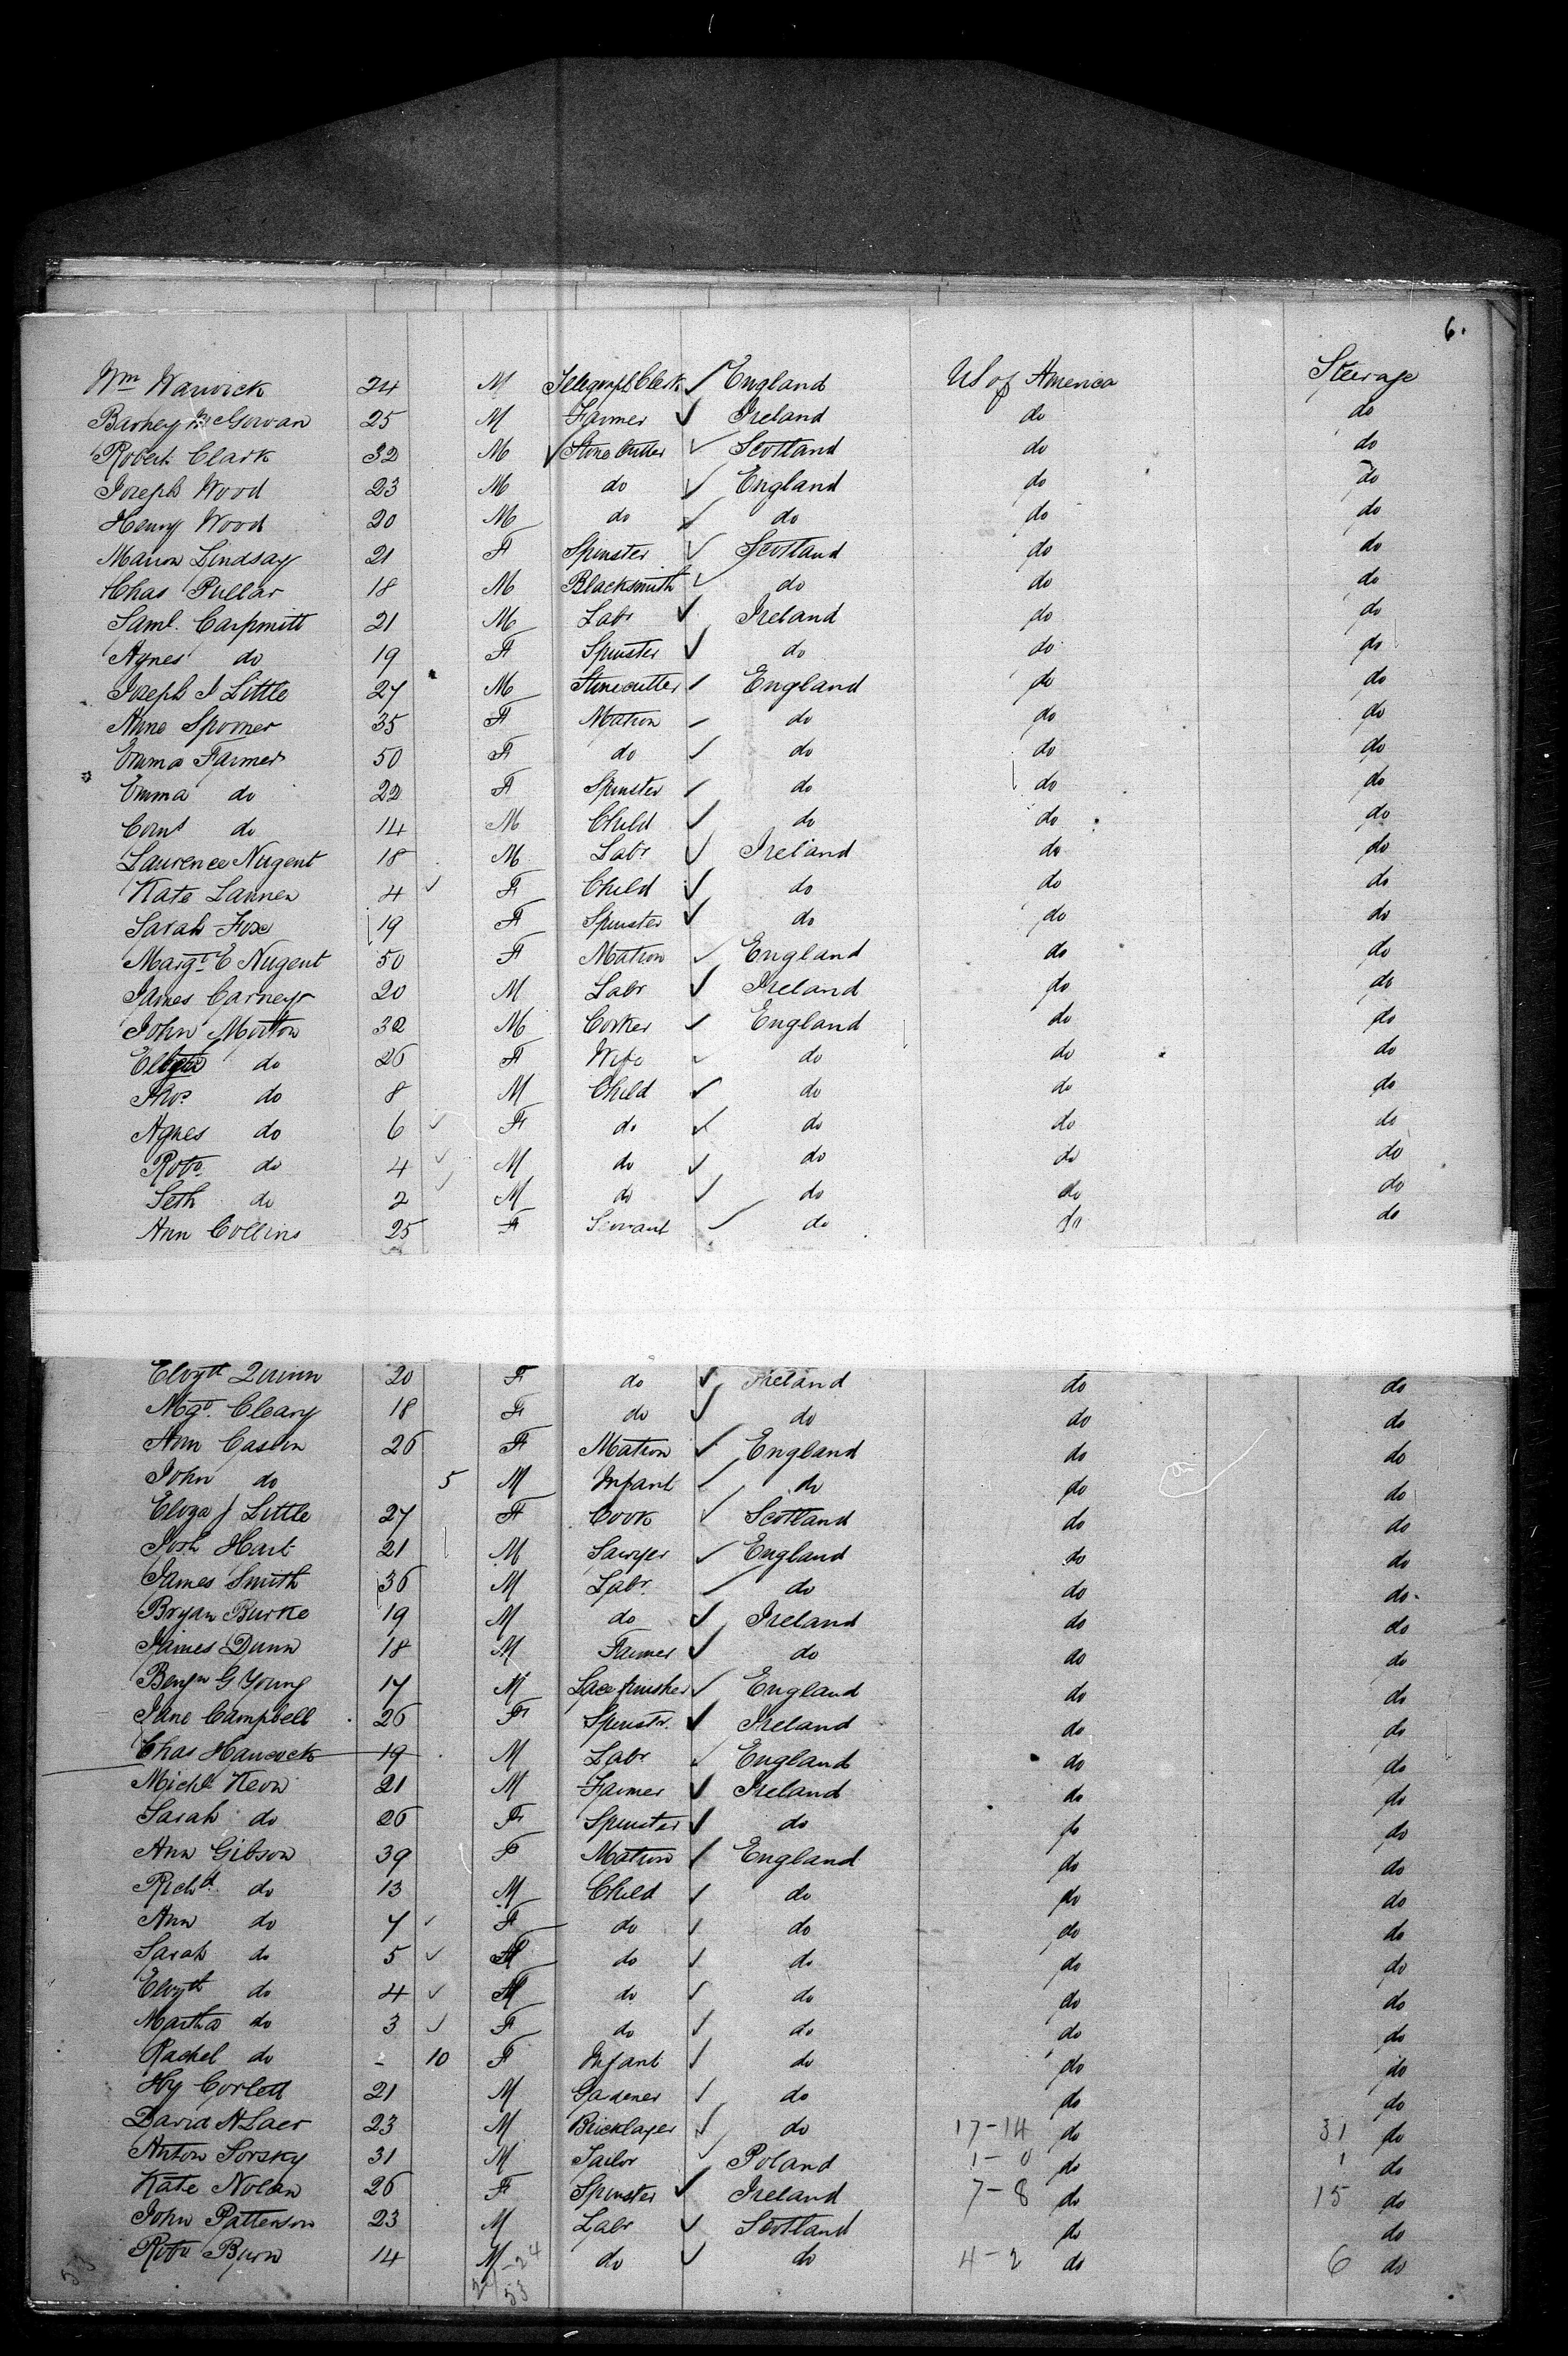 6.
Wm Warwick 24 M Telegraph Clerk ✓ England US of America Steerage
Barney McGowan 25 M Farmer ✓ Ireland do do
Robert Clark 32 M ✓ Stone Cutter ✓ Scotland do do
Joseph Wood 23 M do ✓ England do do
Henry Wood 20 M do ✓ do do do
Marion Lindsay 21 F Spinster ✓ Scotland do do
Chas Pullar 18 M Blacksmith ✓ do do do
Saml. Carpmitt 21 M Labr ✓ Ireland do do
Agnes do 19 F Spinster ✓ do do do
Joseph J Little 27 M Stonecutter ✓ England do do
Anne Spomer 35 F Matron ✓ do do do
Emma Farmer 50 F do ✓ do do do
Emma do 22 F Spinster ✓ do do do
Corns do 14 M Child ✓ do do do
Laurence Nugent 18 M Labr ✓ Ireland do do
Kate Lannen 4 ✓ F Child ✓ do do do
Sarah Fox 19 F Spinster ✓ do do do
Margt E Nugent 50 F Matron ✓ England do do
James Carney 20 M Labr ✓ Ireland do do
John Morton 32 M Corker ✓ England do do
do 26 F Wife ✓ do do do
Thos do 8 M Child ✓ do do do
Agnes do 6 ✓ F do ✓ do do do
Robt do 4 ✓ M do ✓ do do do
Seth do 2 ✓ M do ✓ do do do
Ann Collins 25 F Servant ✓ do do do
Elizth Quinn 20 F do ✓ Ireland do do
Mgt. Cleary 18 F do ✓ do do do
Ann Caslin 26 F Matron ✓ England do do
John do 5 M Infant ✓ do do do
Eliza J Little 27 F Cook ✓ Scotland do do
Josh Hart 21 M Sawyer ✓ England do do
James Smith 36 M Labr. ✓ do do do
Bryan Burke 19 M do ✓ Ireland do do
James Dunn 18 M Farmer ✓ do do do
Benjn G Young 17 M Lace finisher ✓ England do do
Jane Campbell 26 F Spinstr. ✓ Ireland do do
Chas Hancock 19 M Labr ✓ England do do
Michl Keon 21 M Farmer ✓ Ireland do do
Sarah do 26 F Spinster ✓ do do do
Ann Gibson 39 F Matron ✓ England do do
Richd do 13 M Child ✓ do do do
Ann do 7 ✓ F do ✓ do do do
Sarah do 5 ✓ F do ✓ do do do
Elizth do 4 ✓ F do ✓ do do do
Martha do 3 ✓ F do ✓ do do do
Rachel do - 10 F Infant ✓ do do do
Hy Corlett 21 M Gadener ✓ do do do
David A Laer 23 M Bricklayer ✓ do 17-14 do 31 do
Anton Sorsky 31 M Tailor ✓ Poland 1-0 do 1 do
Kate Nolan 26 F Spinster ✓ Ireland 7-8 do 15 do
John Patterson 23 M Labr ✓ Scotland do do
Robt Burn 14 M do ✓ do 4-2 do 6 do
53 -24
53